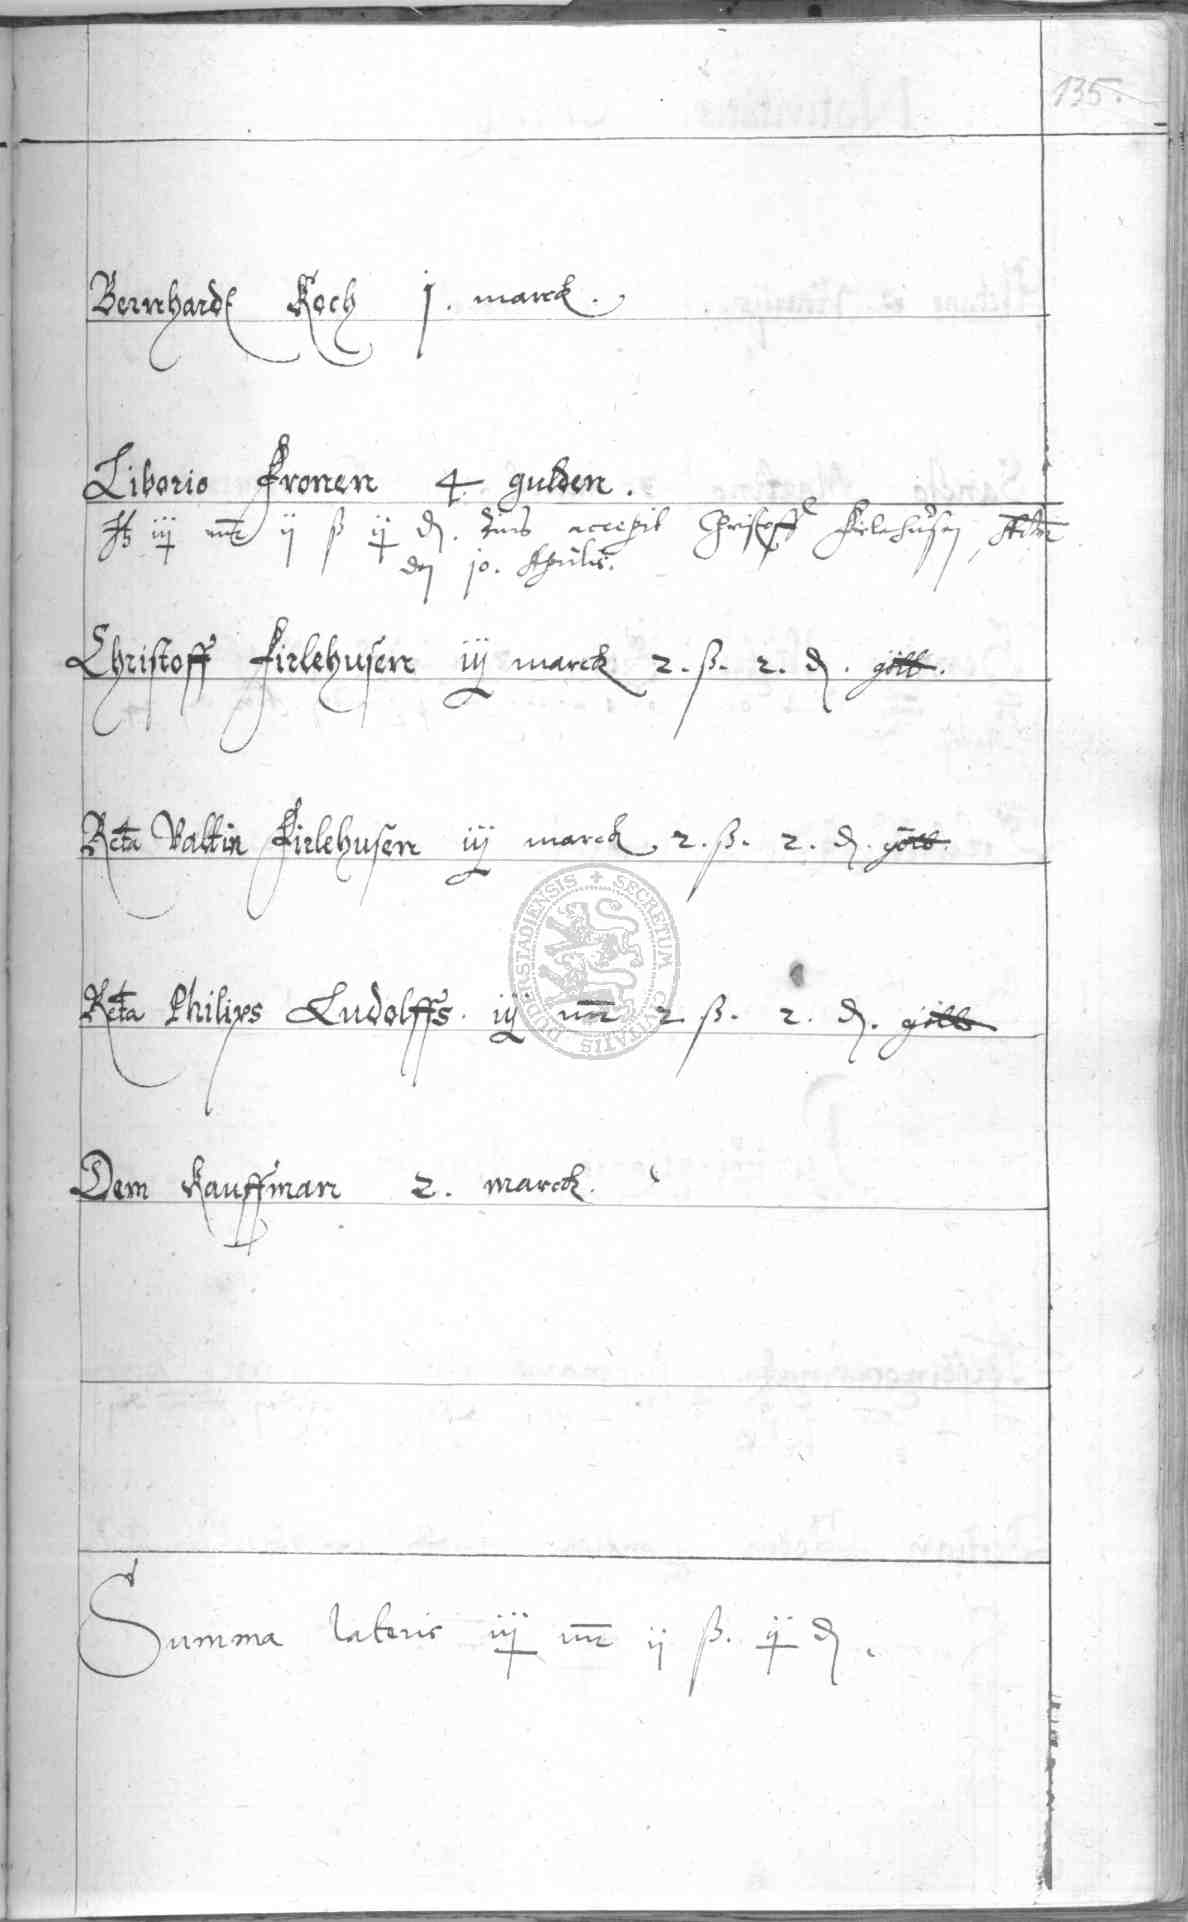 135.
Bernhardt Koch j. marck.
Liborio Kronen 4 gulden.
iij mr ij ß ij d. accepit Christoff Firlehusen
den 10. Aprilis.
Christoff Firlehusen iij marck 2. ß. 2. d. gölt.
Rcta Valtin Firlehusen iij marck. 2. ß. 2. d. gölt.
Rcta Philips Ludolffs. iij mr 2 ß. 2. d. gölt
Dem Kauffman 2. marck.
Summa lateris iij mr ij ß. ij d.
SECRETUM CIVITATIS DUDERSTADIENSIS